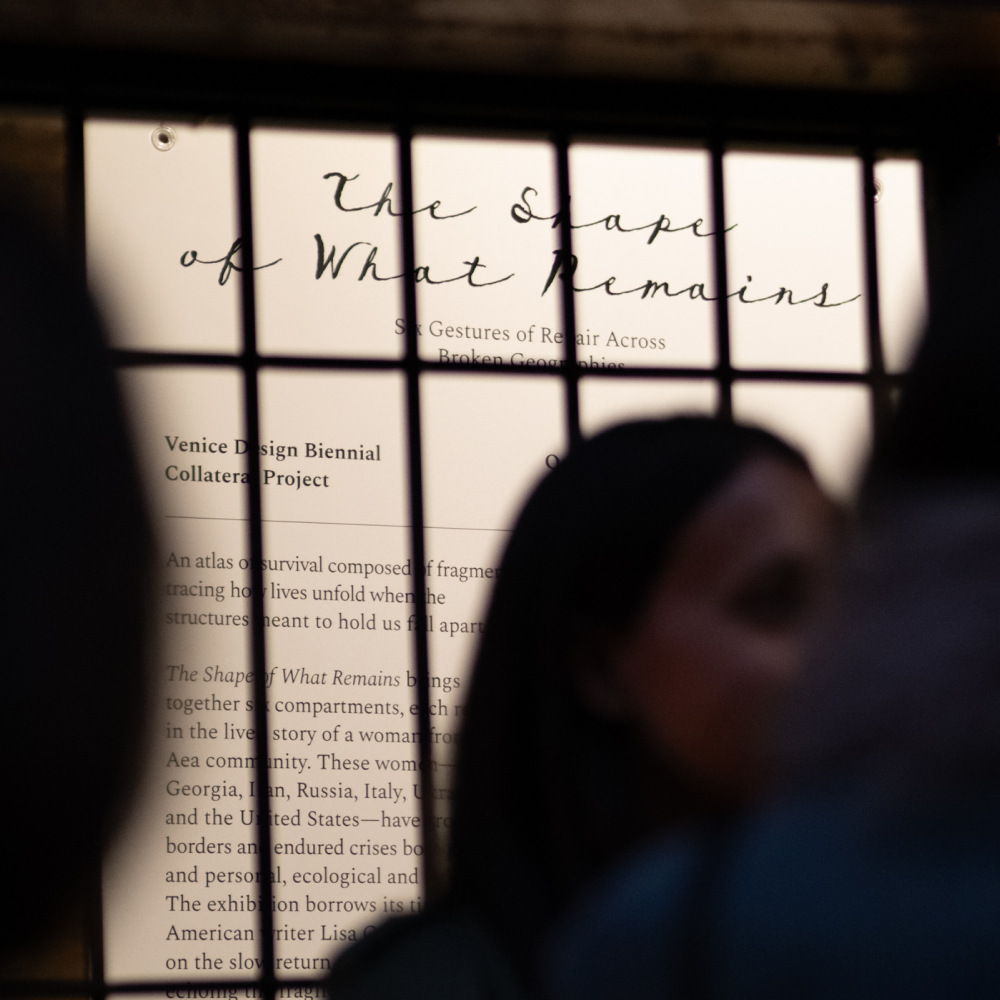 The Shape
of What Remains
Six Gestures of Repair Across
Broken Geographies
Venice Design Biennial
Collateral Project
An atlas of survival composed of
tracing how lives unfold when the
structures meant to hold us fall apart
The Shape of What Remains brings
together six compartments, each
in the lived story of a woman from
Aea community. These women—
Georgia, Iran, Russia, Italy,
and the United States—have
borders and endured crises
and personal, ecological and
The exhibition borrows its
American writer Lisa
on the slow return
echoing the